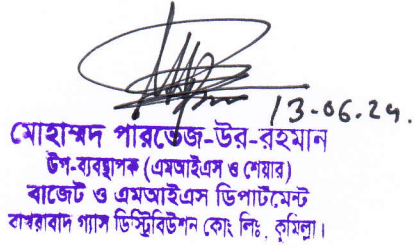 13-06-24.
মোহাম্মদ পারভেজ-উর-রহমান
উপ-ব্যবস্থাপক (এমআইএস ও শেয়ার)
বাজেট ও এমআইএস ডিপার্টমেন্ট
বাখরাবাদ গ্যাস ডিস্ট্রিবিউশন কোং লিঃ, কুমিল্লা।